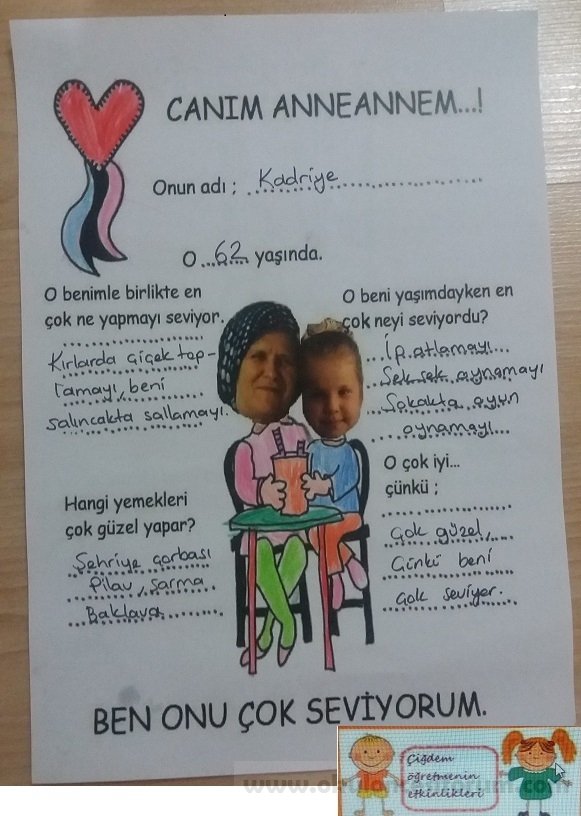 CANIM ANNEANNEM...!
Onun adı ; Kadriye
O 62 yaşında.
O benimle birlikte en
çok ne yapmayı seviyor.
Kırlarda çiçek top-
lamayı, beni
salıncakta sallamayı.
O beni yaşımdayken en
çok neyi seviyordu?
İp atlamayı
Sek sek oynamayı
Sokakta oyun
oynamayı
Hangi yemekleri
çok güzel yapar?
Şehriye çorbası
Pilav, sarma
Baklava
O çok iyi...
çünkü ;
Çok güzel,
Çünkü beni
çok seviyor.
BEN ONU ÇOK SEVİYORUM.
Çiğdem
öğretmenin
etkinlikleri